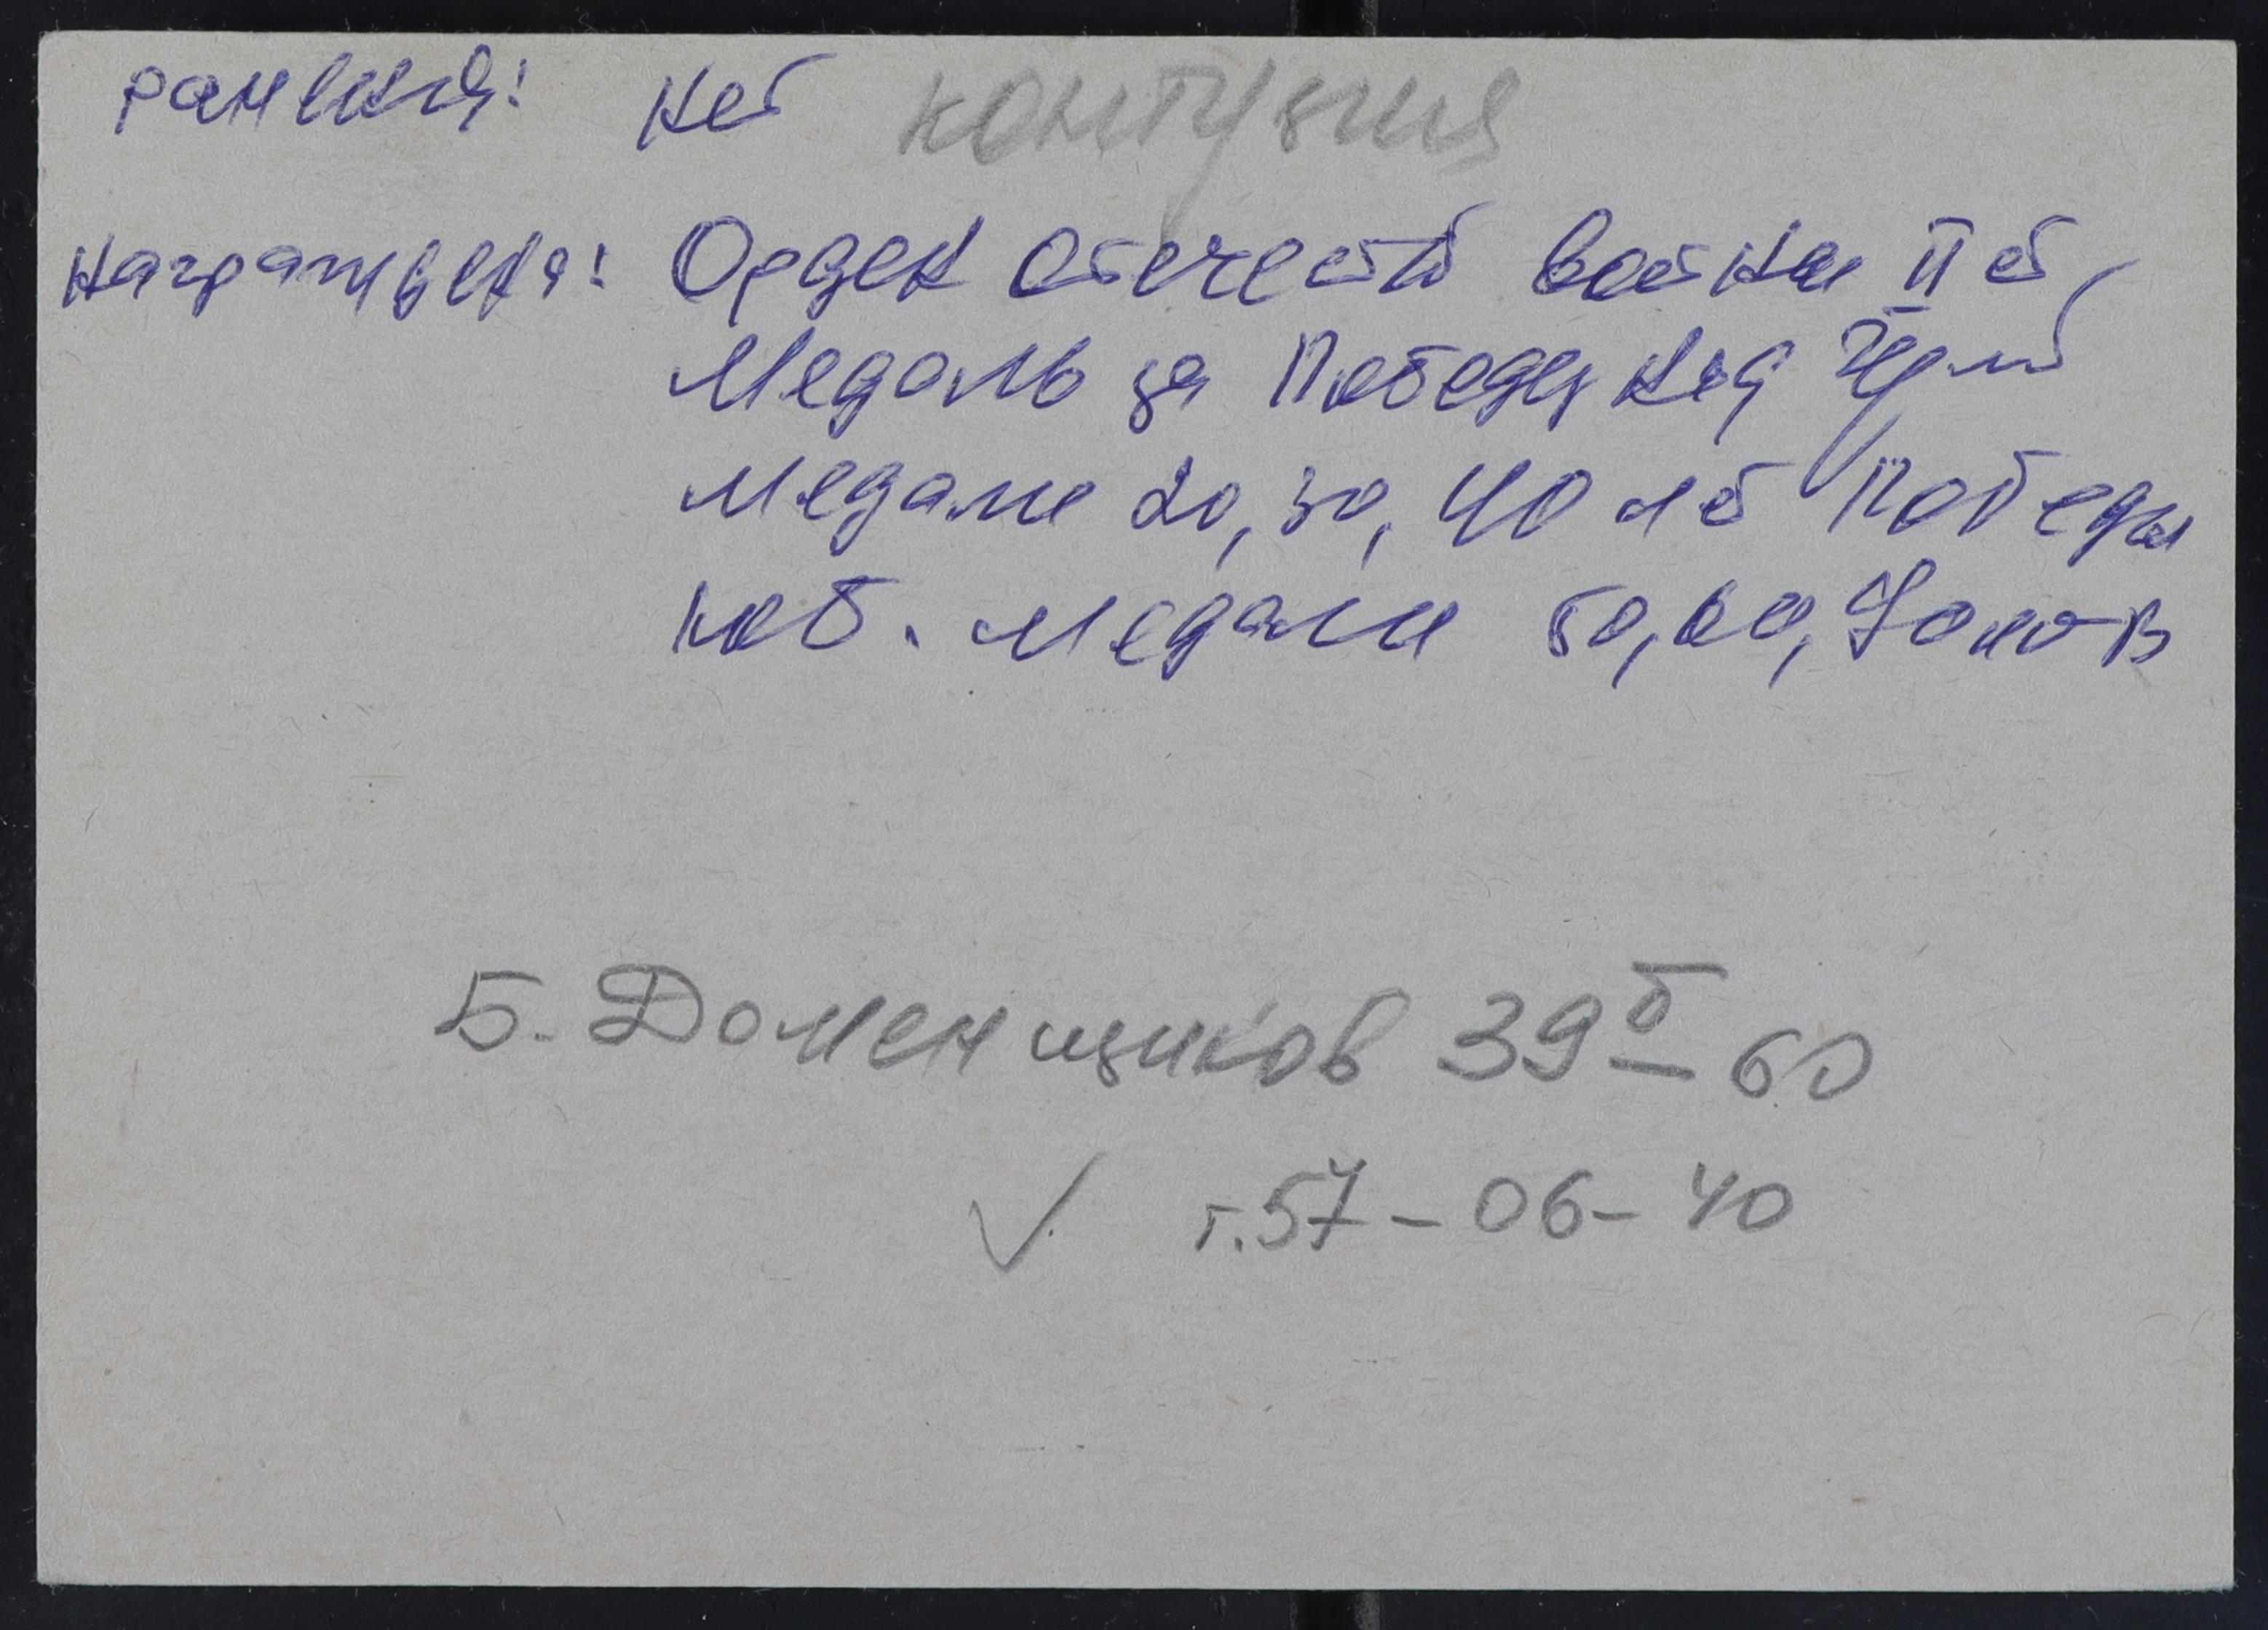 ранения: нет контузия
Награждена: Орден Отечеств войны II ст,
Медаль за Победу над Герм
медали 20, 30, 40 лет Победы
юб. медали 50, 60, 70 лет В
Б. Доменщиков 39 б 60
т. 57-06-40